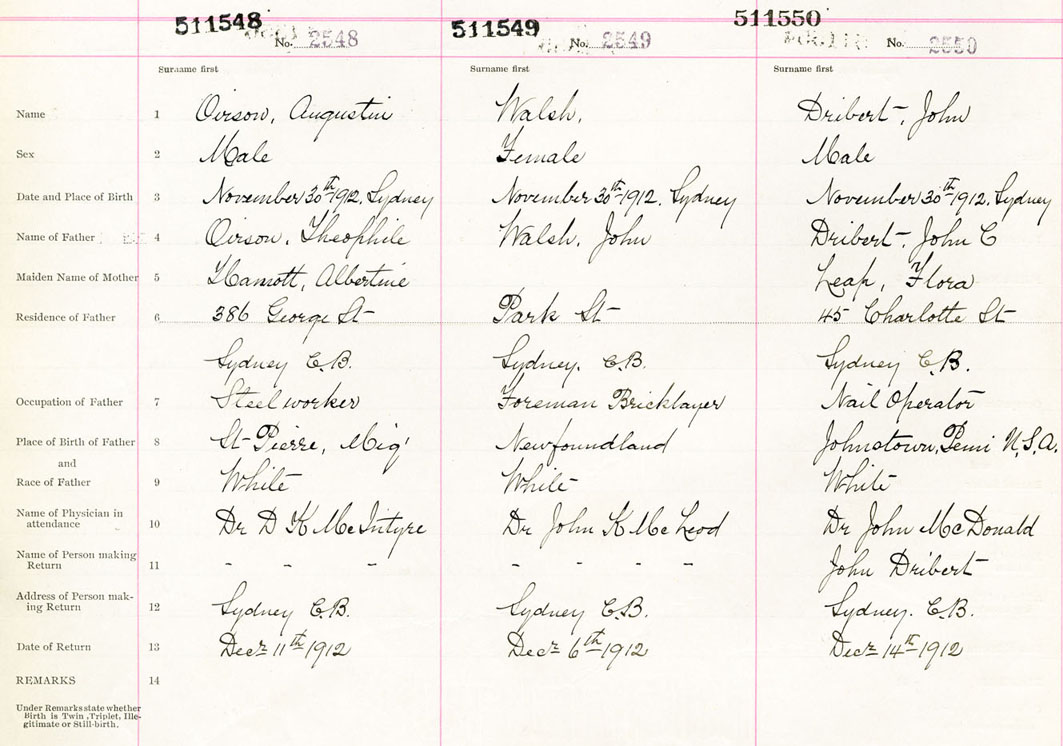 511548 511549 511550
No. 2548 No. 2549 No. 2550
Surname first Surname first Surname first
Name 1 Oirson, Augustin Walsh, Dribert, John
Sex 2 Male Female Male
Date and Place of Birth 3 November 30th 1912, Sydney November 30th 1912, Sydney November 30th 1912, Sydney
Name of Father 4 Oirson, Theophile Walsh, John Dribert, John C
Maiden Name of Mother 5 Albertine Leap, Flora
Residence of Father 6 386 George St Park St 45 Charlotte St
Sydney C.B. Sydney. C.B. Sydney C.B.
Occupation of Father 7 Steelworker Foreman Bricklayer Nail Operator
Place of Birth of Father 8 St Pierre, Miq' Newfoundland Johnstown, U.S.A.
and
Race of Father 9 White White White
Name of Physician in
attendance 10 Dr D K McIntyre Dr John K McLeod Dr John McDonald
Name of Person making
Return 11 - - - - - - - John Dribert
Address of Person mak-
ing Return 12 Sydney C.B. Sydney C.B. Sydney. C.B.
Date of Return 13 Decr 11th 1912 Decr 6th 1912 Decr 14th 1912
REMARKS 14
Under Remarks state whether
Birth is Twin, Triplet, Ille-
gitimate or Still-birth.